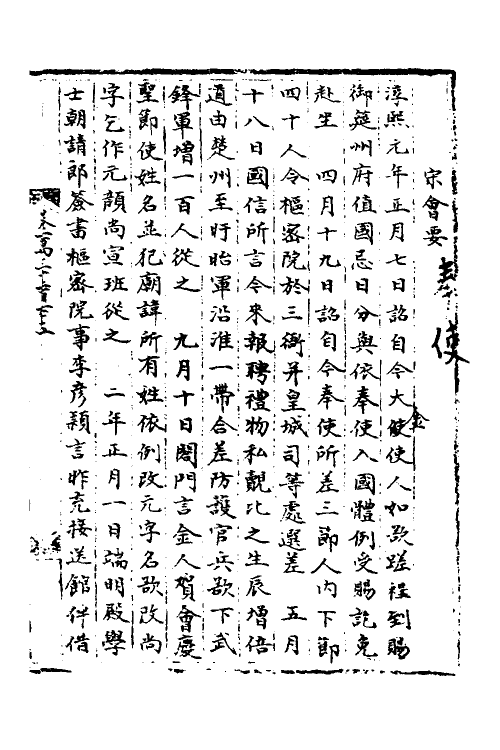 宋會要
奉使
淳熙元年正月七日詔自今大使使人如欲蹉程到賜
金
御筵州府值國忌日分與依奉使入國體例受賜訖免
赴坐　四月十九日詔自今奉使所差三節人內下節
四十人令樞密院於三衙并皇城司等處選差　五月
十八日國信所言今來報聘禮物私覿比之生辰增倍
道由楚州至盱眙軍沿淮一帶合差防護官兵欲下武
鋒軍增一百人從之　九月十日閤門言金人賀會慶
聖節使姓名並犯廟諱所有姓依例改元字名欲改尚
字乞作元顏尚宣班從之　二年正月一日端明殿學
士朝請郎簽書樞密院事李彥穎言昨充接送館伴借